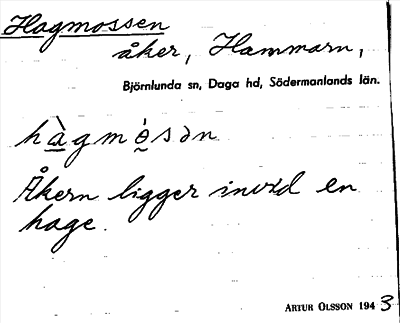 Hagmossen
åker, Hammarn,
Björnlunda sn, Daga hd, Södermanlands län.
hàgmò̱sən
Åkern ligger invid en
hage.
ARTUR OLSSON 1943